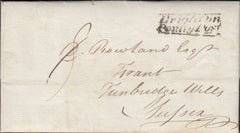 Brighton
Penny Post
Rowland Esqr
Frant
Tunbridge Wells
Sussex